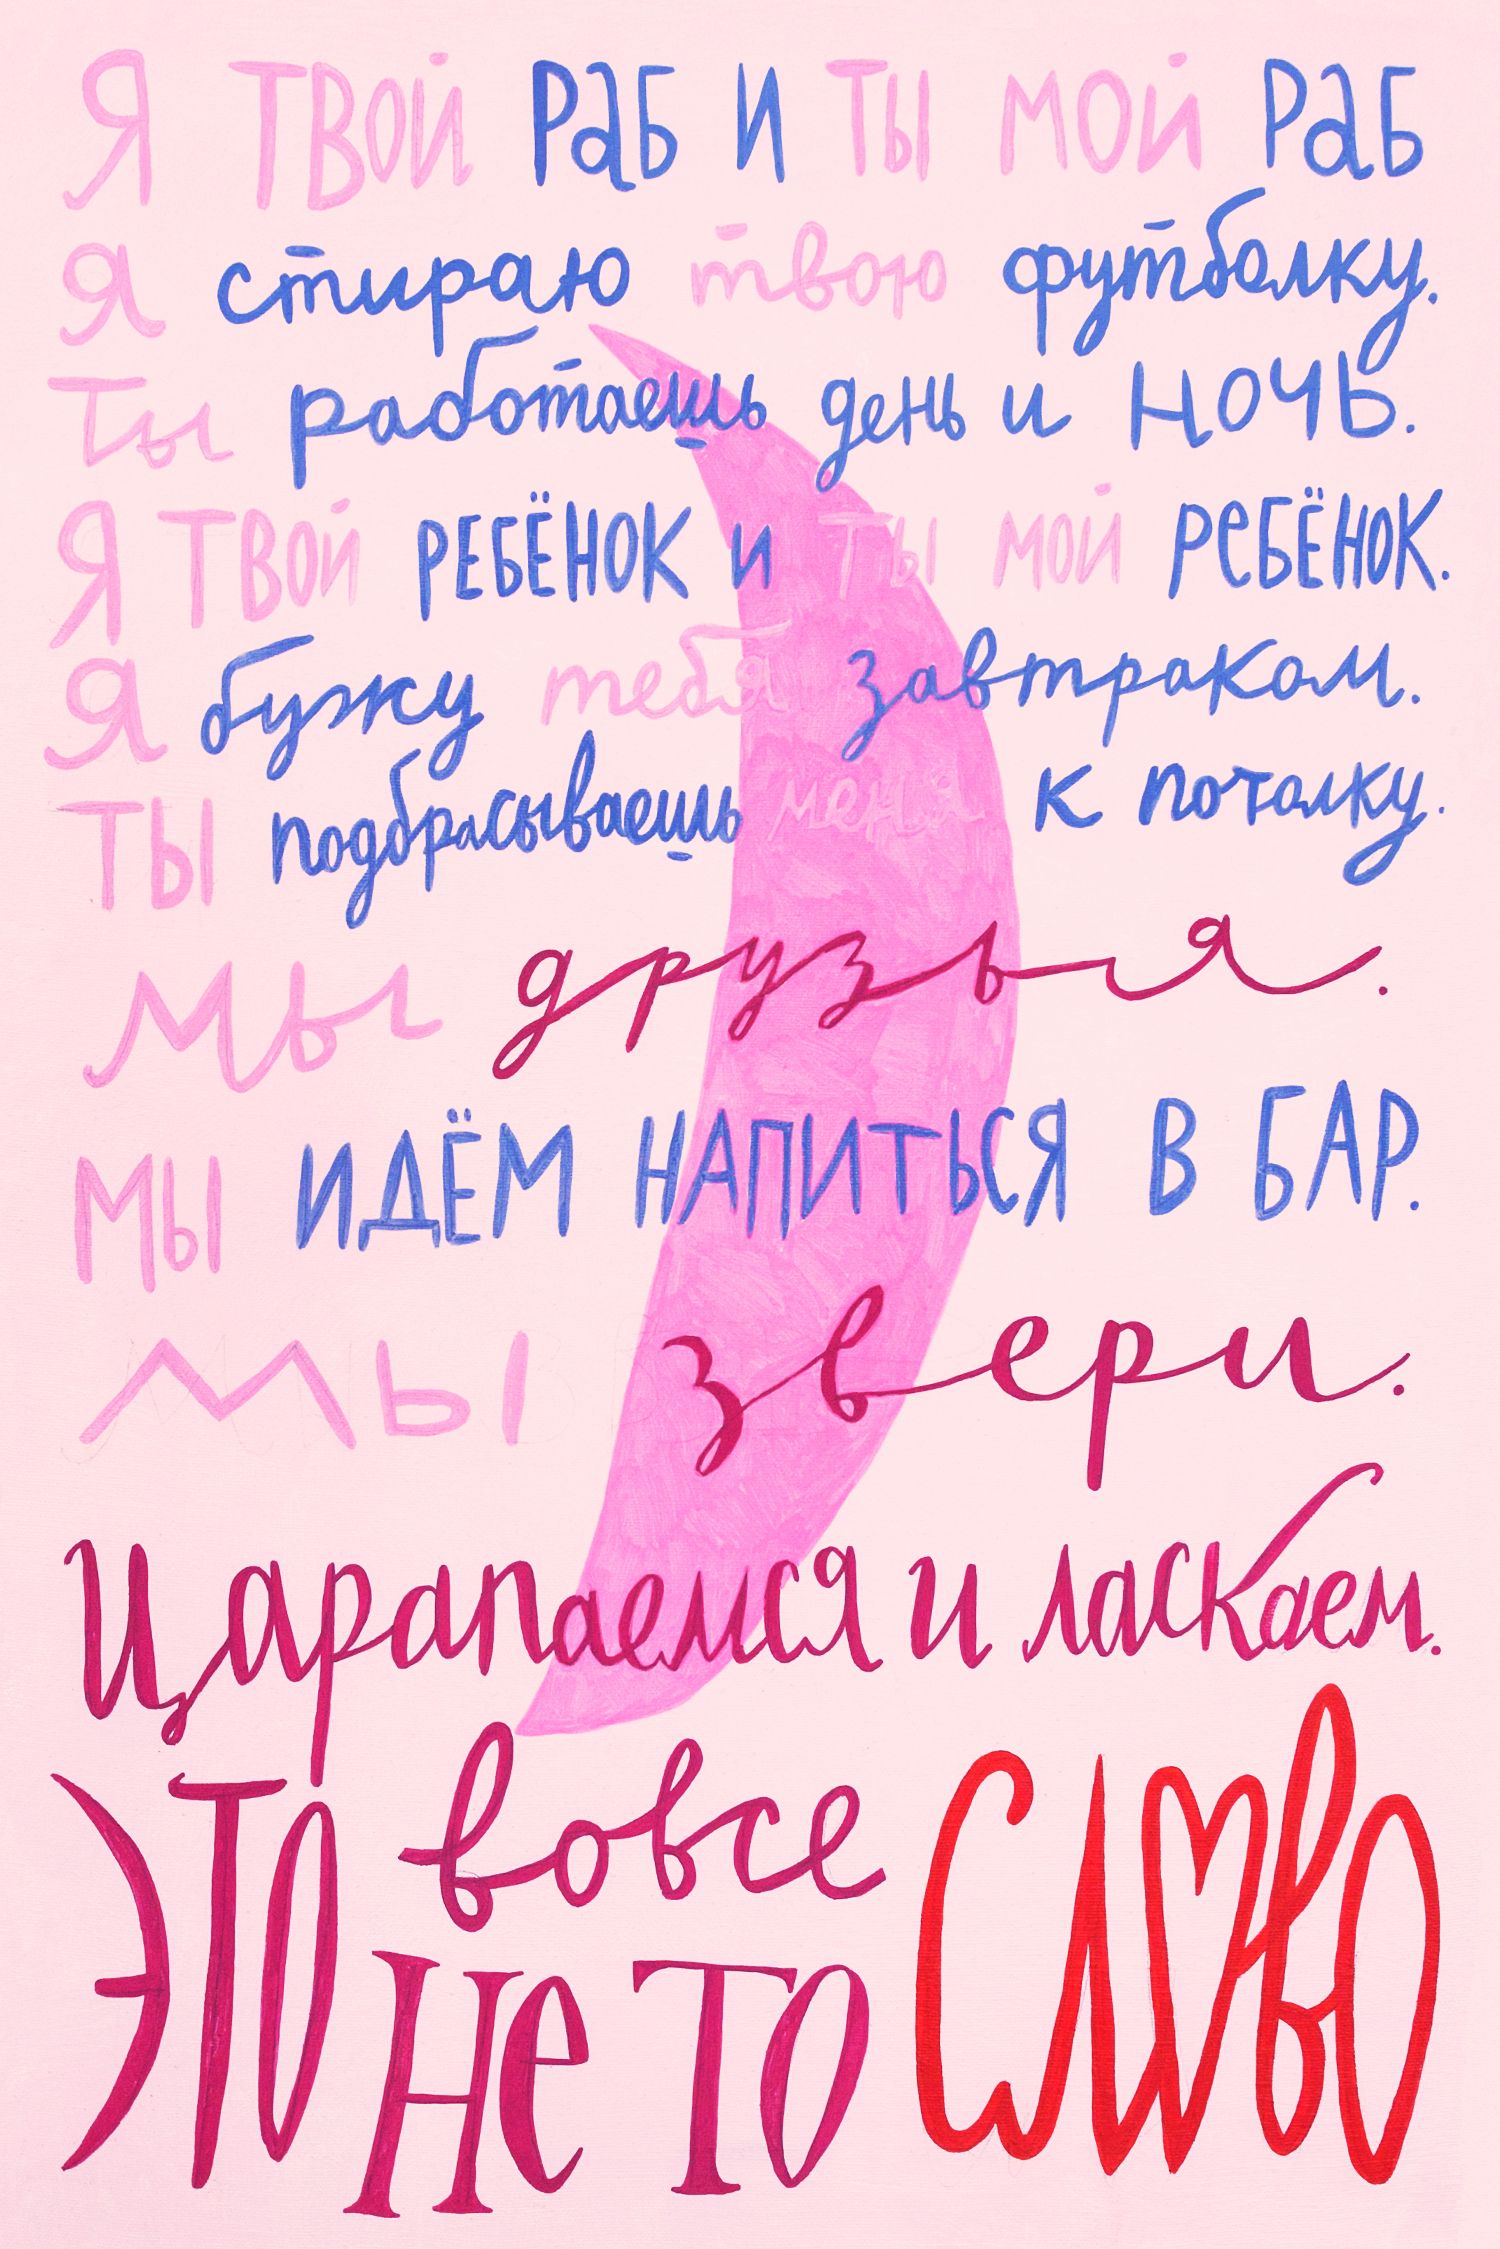 Я ТВОЙ РаБ И ТЫ МОЙ РаБ
Я стираю твою футболку.
Ты работаешь день и НОЧЬ.
Я ТВОЙ РЕБЁНОК И ТЫ МОЙ РЕБЁНОК.
Я бужу тебя завтраком.
ТЫ подбрасываешь меня к потолку.
Мы друзья.
МЫ ИДЁМ НАПИТЬСЯ В БАР.
МЫ звери.
Царапаемся и ласкаем.
ЭТО вовсе СЛОВО
Не ТО